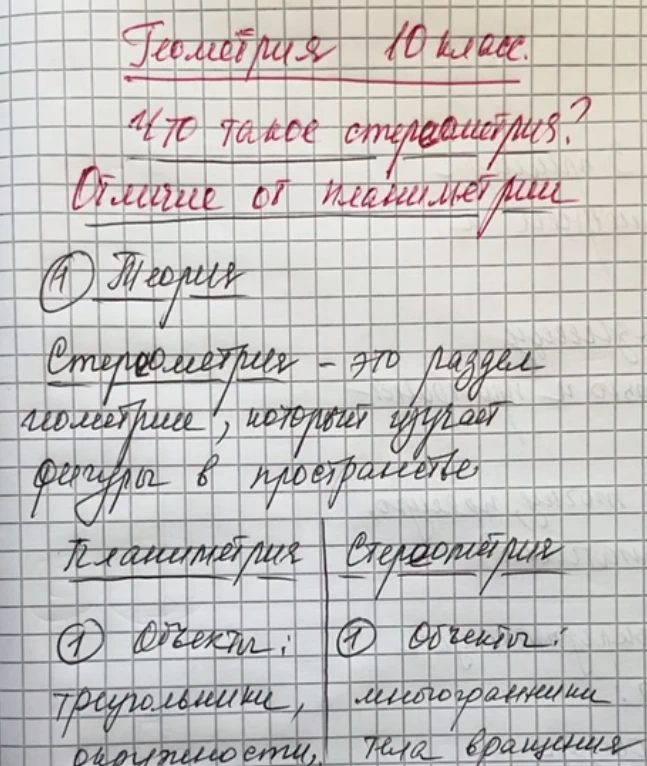 Геометрия 10 класс.
Что такое стереометрия?
Отличие от планиметрии
1 Теория
Стереометрия - это раздел
геометрии, который изучает
фигуры в пространстве
Планиметрия | Стереометрия
1 Объекты: | 1 Объекты:
треугольники, | многогранники
окружности, | тела вращения